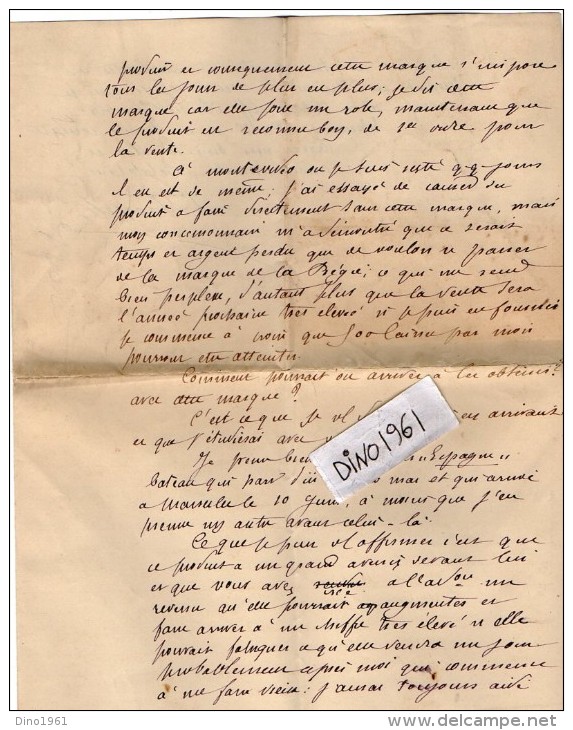 produit et conséquement cette marque s'impose
tous les jours de plus en plus; je dis cette
marque car elle joue un role, maintenant que
le produit est reconnu bon, de 1er ordre pour
la vente.
A montevideo ou je suis resté q.q. jours
il en est de même; j'ai essayé de causer du
produit a faire directement sans cette marque, mais
mon concessionnaire m'a démontré que ce serait
temps et argent perdu que de vouloir se passer
de la marque de la Régie; ce qui me rend
bien perplexe, d'autant plus que la vente sera
l'année prochaine tres elevée si je puis en fournir
je commence à voir que 500 caisses par mois
pourront etre atteintes
Comment pourrait on arriver à les obtenir
avec cette marque?
C'est ce que je arrivant
et que j'étudierai avec
Je prend "Espagne"
bateau qui part mai et qui arrive
a Marseille le 10 Juin, à moins que j'en
prenne un autre avant celui-là.
Ce que je puis affirmer c'est que
ce produit a un grand avenir devant lui
et que vous avez créé a un
revenu qu'elle pourrait augmenter et
faire arriver à un chiffre tres elevé si elle
pouvait fabriquer ce qu'elle vendra un jour
probablement apres moi qui commence
à me faire vieux: j'aurai toujours aidé
DINO1961
Dino1961
www.delcampe.net